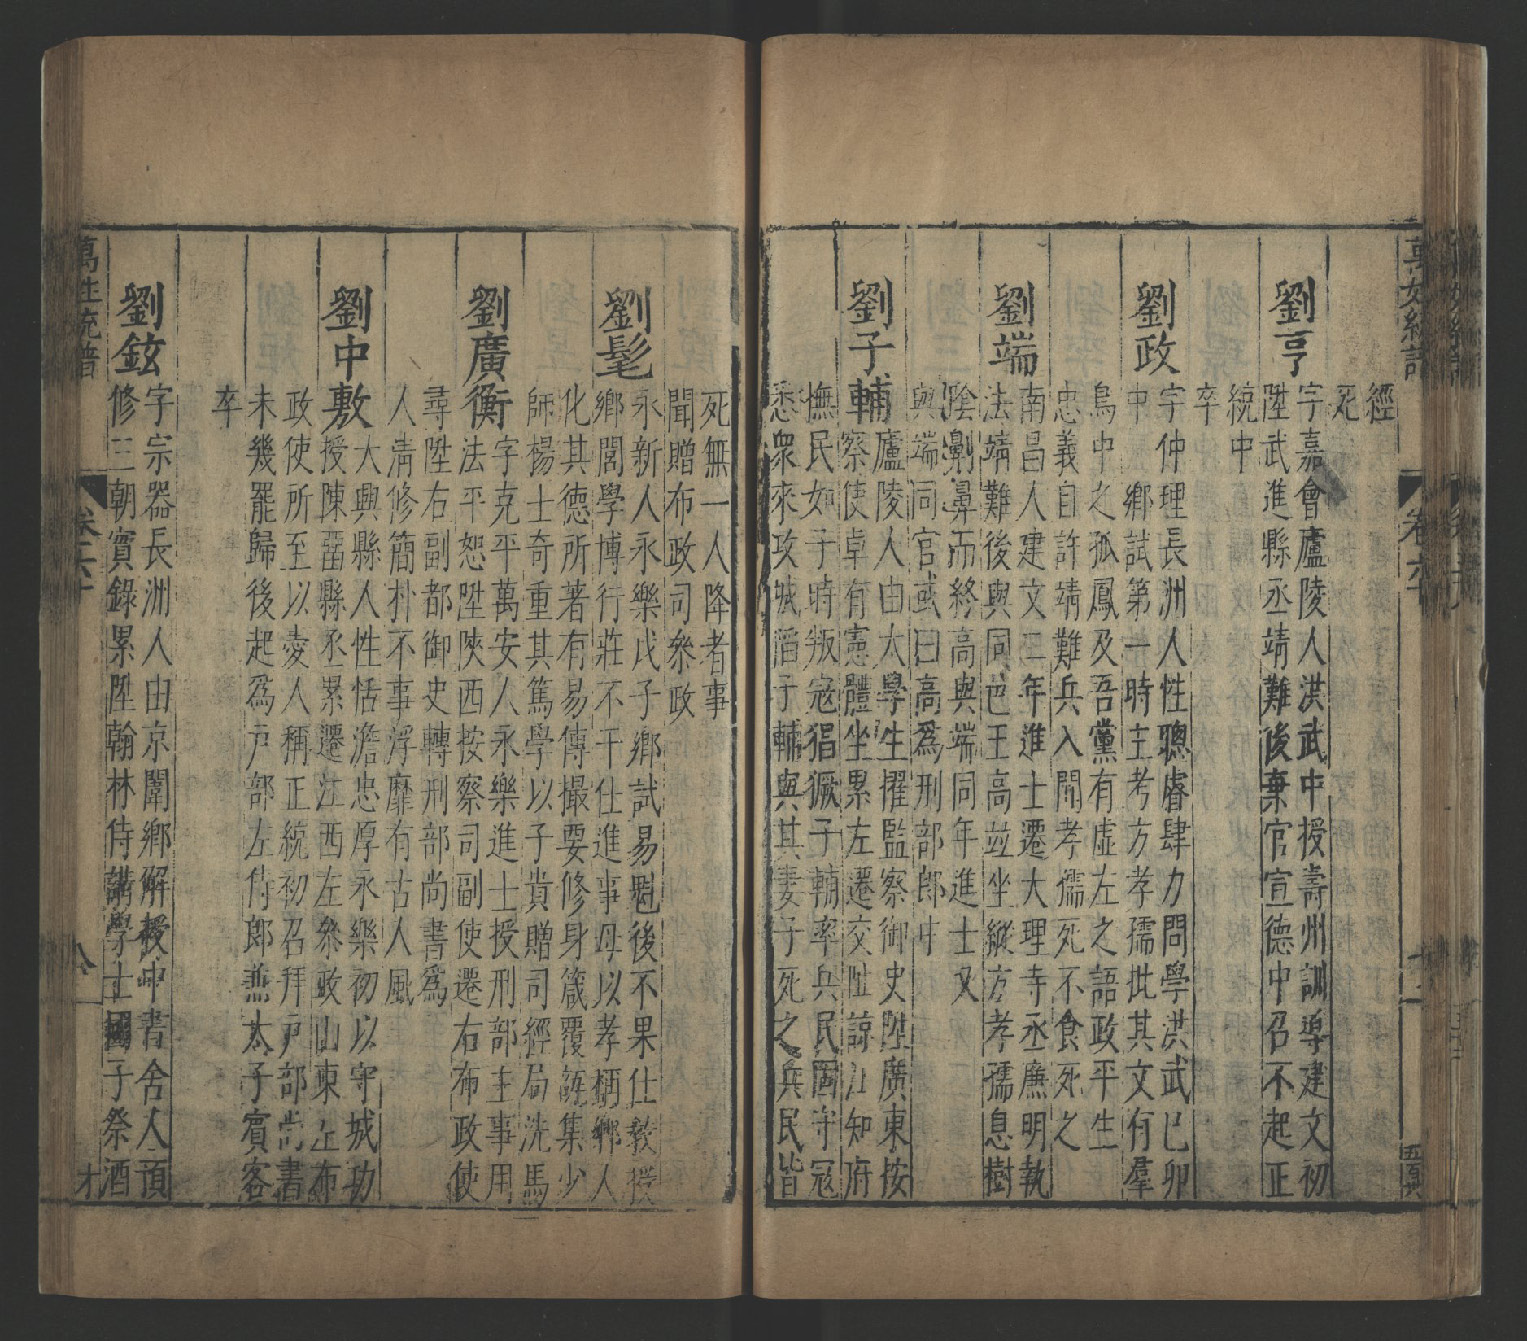 經
死
劉亨
字嘉會廬陵人洪武中授壽州訓導建文初
陞武進縣丞靖難後棄官宣德中召不起正
統中
卒
劉政
字仲理長洲人性聰睿肆力問學洪武己卯
中鄉試第一時主考方孝孺批其文有羣
鳥中之孤鳳及吾黨有虛左之語政平生
忠義自許靖難兵入聞孝儒死不食死之
劉端
南昌人建文二年進士遷大理寺丞廉明執
法靖難後與同邑王高竝坐縱方孝孺息樹
陰劓鼻而終高與端同年進士又
與端同官或曰高為刑部郎中
劉子輔
廬陵人由太學生擢監察御史陞廣東按
察使卓有憲體坐累左遷交阯諒江知府
撫民如子時叛寇猖獗子輔率兵民固守寇
悉衆來攻城滔子輔與其妻子死之兵民皆
死無一人降者事
聞贈布政司叅政
劉髦
永新人永樂戊子鄉試易魁後不果仕教授
鄉閭學博行莊不干仕進事母以孝稱鄉人
化其德所著有易傳撮要修身箴覆瓿集少
師楊士奇重其篤學以子貴贈司經局洗馬
劉廣衡
字克平萬安人永樂進士授刑部主事用
法平恕陞陝西按察司副使遷右布政使
尋陞右副都御史轉刑部尚書為
人清修簡朴不事浮靡有古人風
劉中敷
大興縣人性恬澹忠厚永樂初以守城功
授陳畱縣丞累遷江西左叅政山東左布
政使所至以愛人稱正統初召拜戸部尚書
未幾罷歸後起為戸部左侍郎兼太子賓客
卒
劉鉉
字宗器長洲人由京闈鄉解授中書舍人預
修三朝實錄累陞翰林侍講學士國子祭酒
萬姓統譜
卷六十